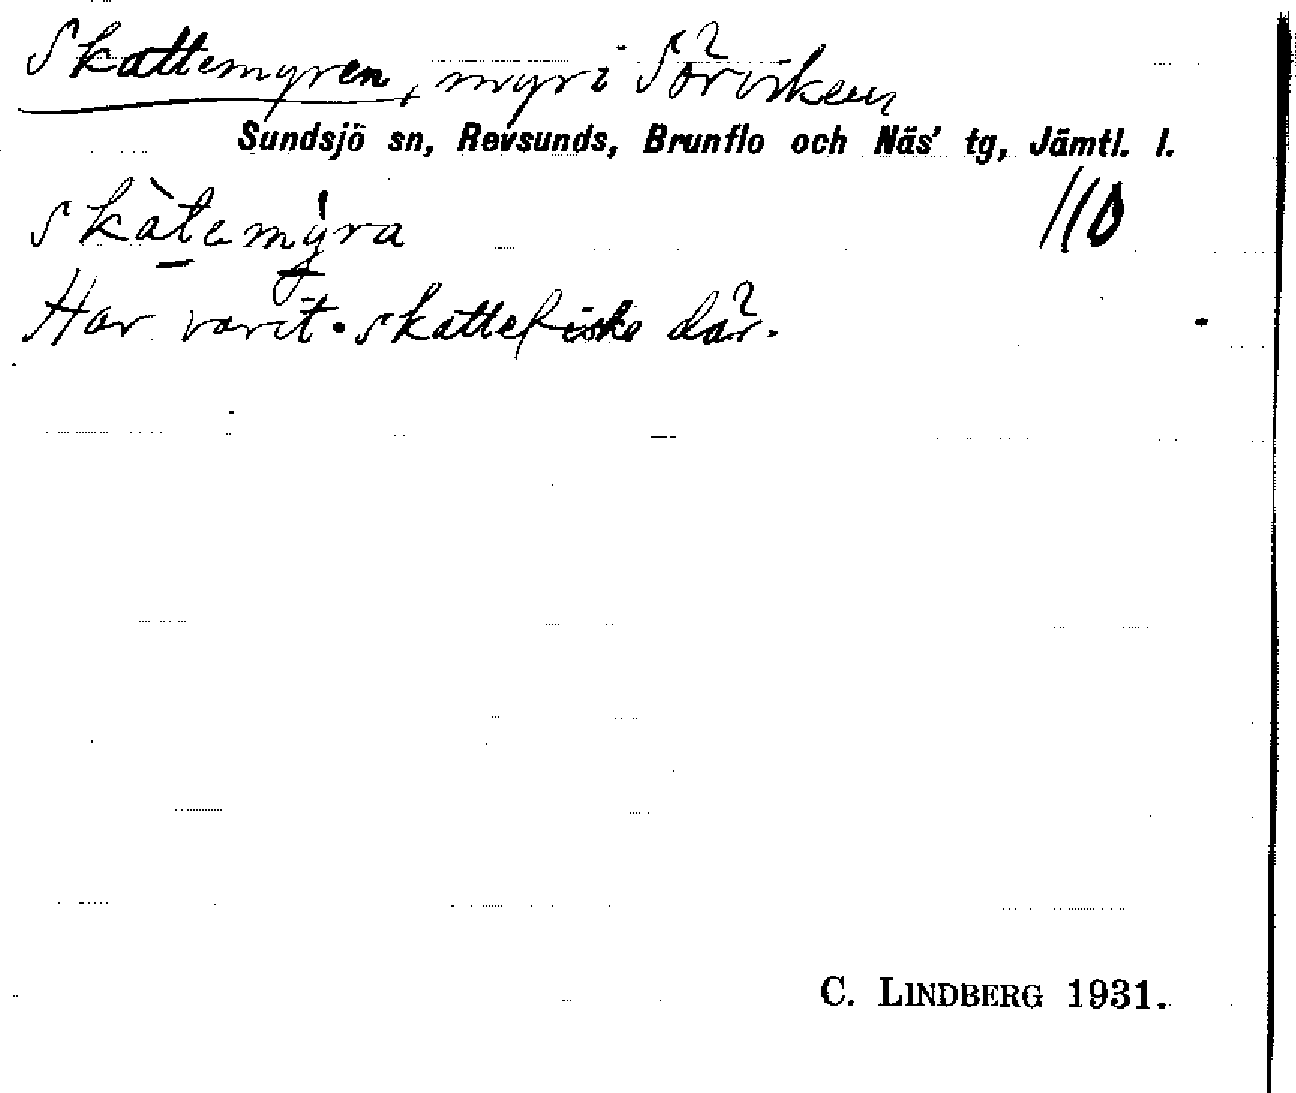 Skattemyren, myr i Sörviken
Sundsjö sn, Revsunds, Brunflo och Näs' tg, Jämtl. l.
skàtemy̍ra 110
Har varit skattefiske där.
C. LINDBERG 1931.